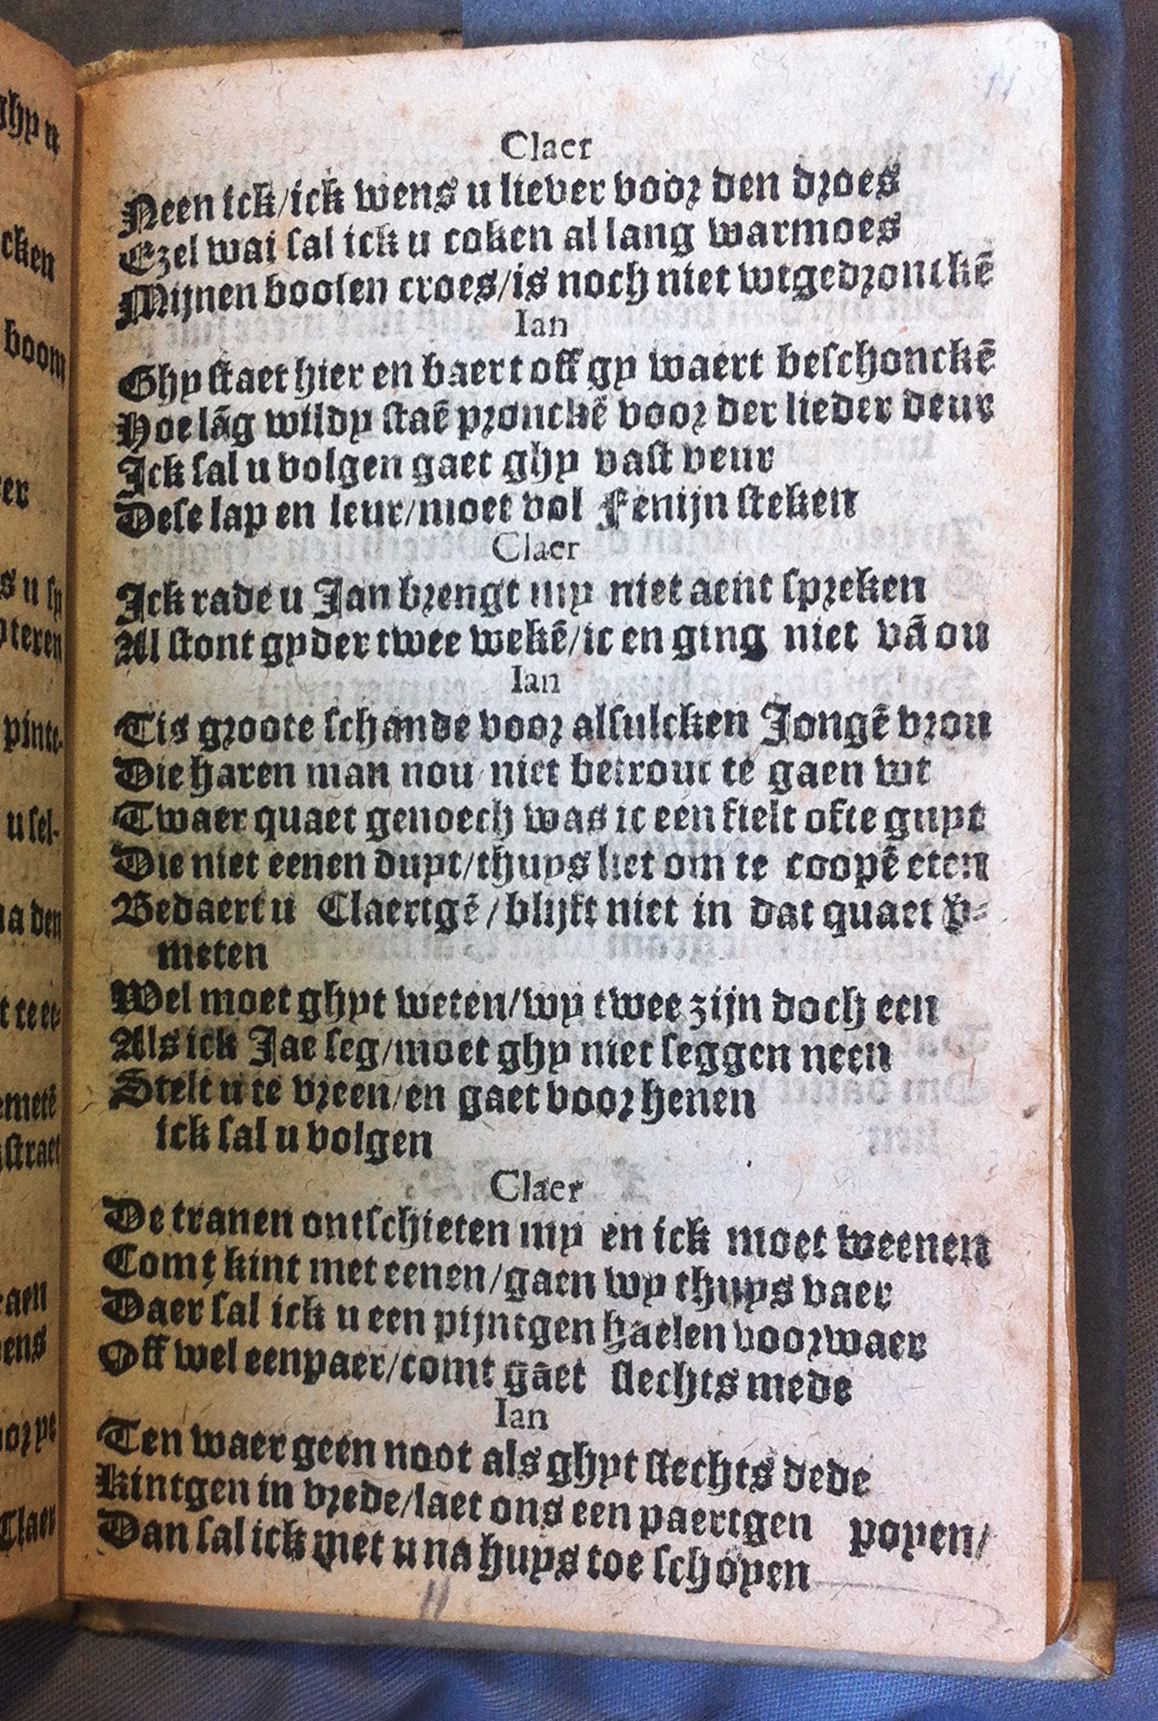 Claer
Neen ick/ick wens u liever voor den droes
Ezel wai sal ick u coken al lang warmoes
Mijnen boosen croes/is noch niet wtgedronckẽ
Ian
Ghy staet hier en baert off gy waert beschonckẽ
Hoe lãg wildy staẽ pronckẽ voor der lieder deur
Ick sal u volgen gaet ghy vast veur
Dese lap en leur/moet vol Fenijn steken
Claer
Ick rade u Jan brengt my niet aent spreken
Al stont gy der twee wekẽ/ic en ging niet vã ou
Ian
Tis groote schande voor alsulcken Jongẽ vrou
Die haren man nou niet betrout te gaen wt
Twaer quaet genoech was ic een fielt ofte guyt
Die niet eenen duyt/thuys liet om te coopẽ eten
Bedaert u Claertgẽ/blijft niet in dat quaet v-
meten
Wel moet ghyt weten/wy twee zijn doch een
Als ick Jae seg/moet ghy niet seggen neen
Stelt u te vreen/en gaet voor henen
ick sal u volgen
Claer
De tranen ontschieten my en ick moet weenen
Comt kint met eenen/gaen wy thuys vaer
Daer sal ick u een pijntgen haelen voorwaer
Off wel eenpaer/comt gaet slechts mede
Ian
Ten waer geen noot als ghyt slechts dede
Kintgen in vrede/laet ons een paertgen poyen/
Dan sal ick met u na huys toe schoyen
11